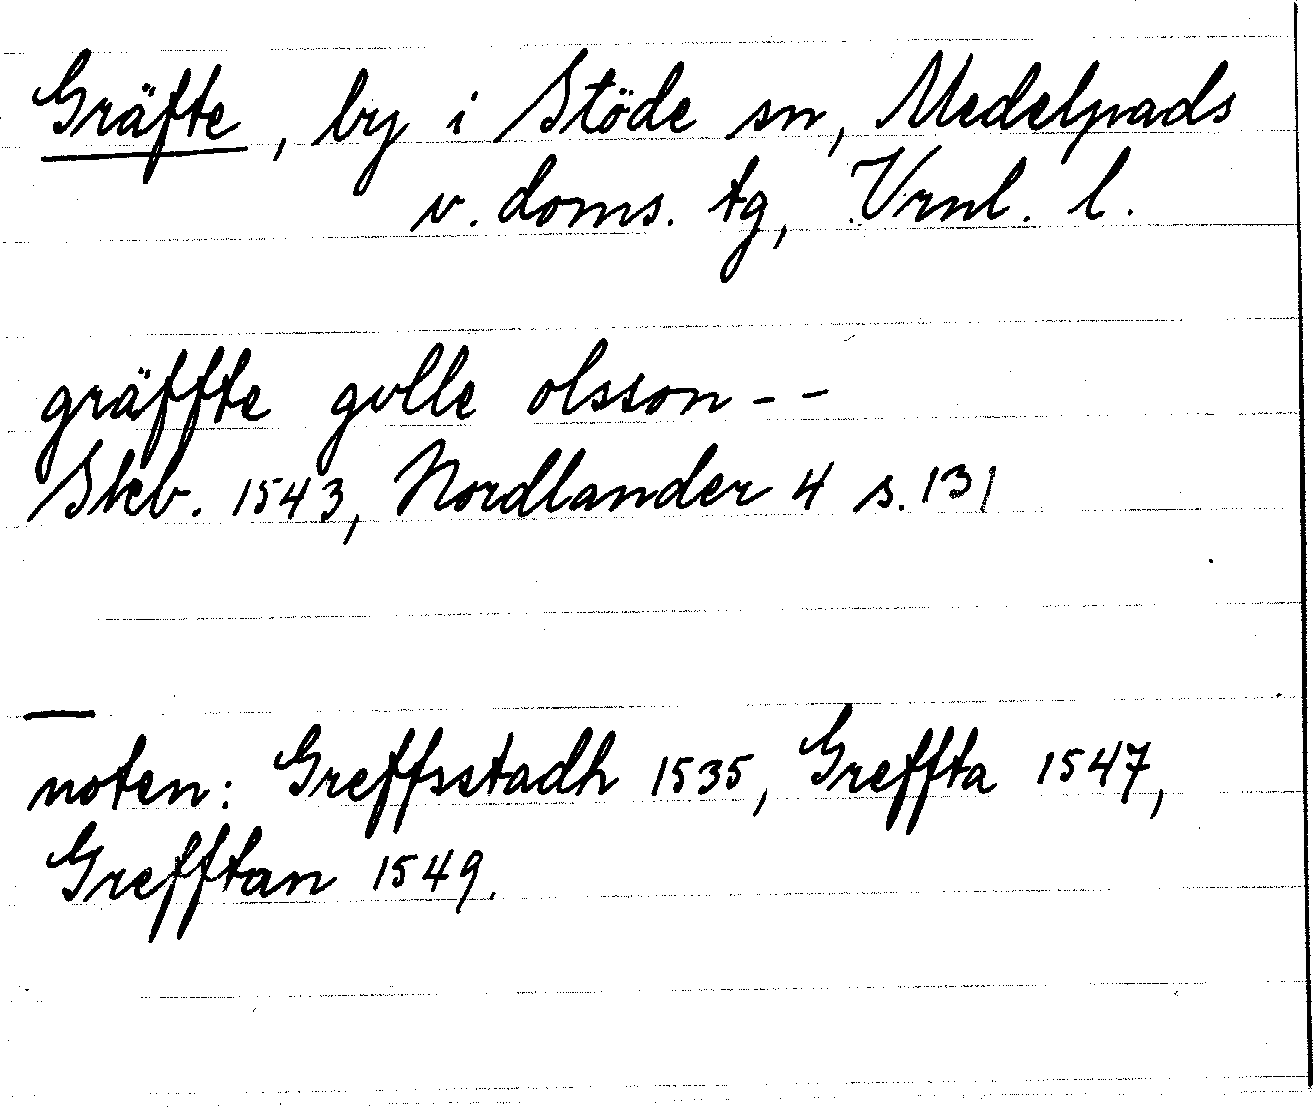 Gräfte, by i Stöde sn, Medelpads
v. doms. tg, Vrnl. l.
gräffte gulle olsson - -
Skb. 1543, Nordlander 4 s. 131
noten: Greffsstadh 1535, Greffta 1547,
Grefftan 1549.